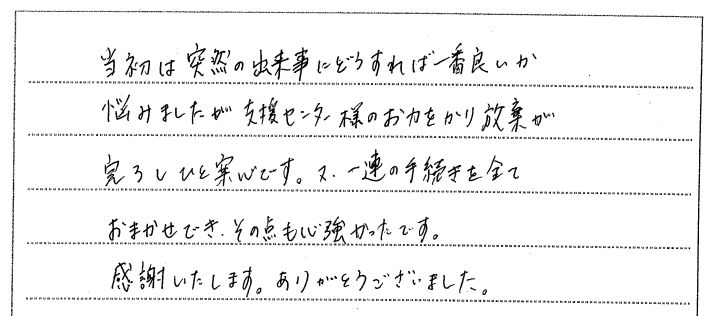 当初は突然の出来事にどうすれば一番良いか
悩みましたが支援センター様のお力をかり放棄が
完了しひと安心です。又、一連の手続きを全て
おまかせでき、その点も心強かったです。
感謝いたします。ありがとうございました。